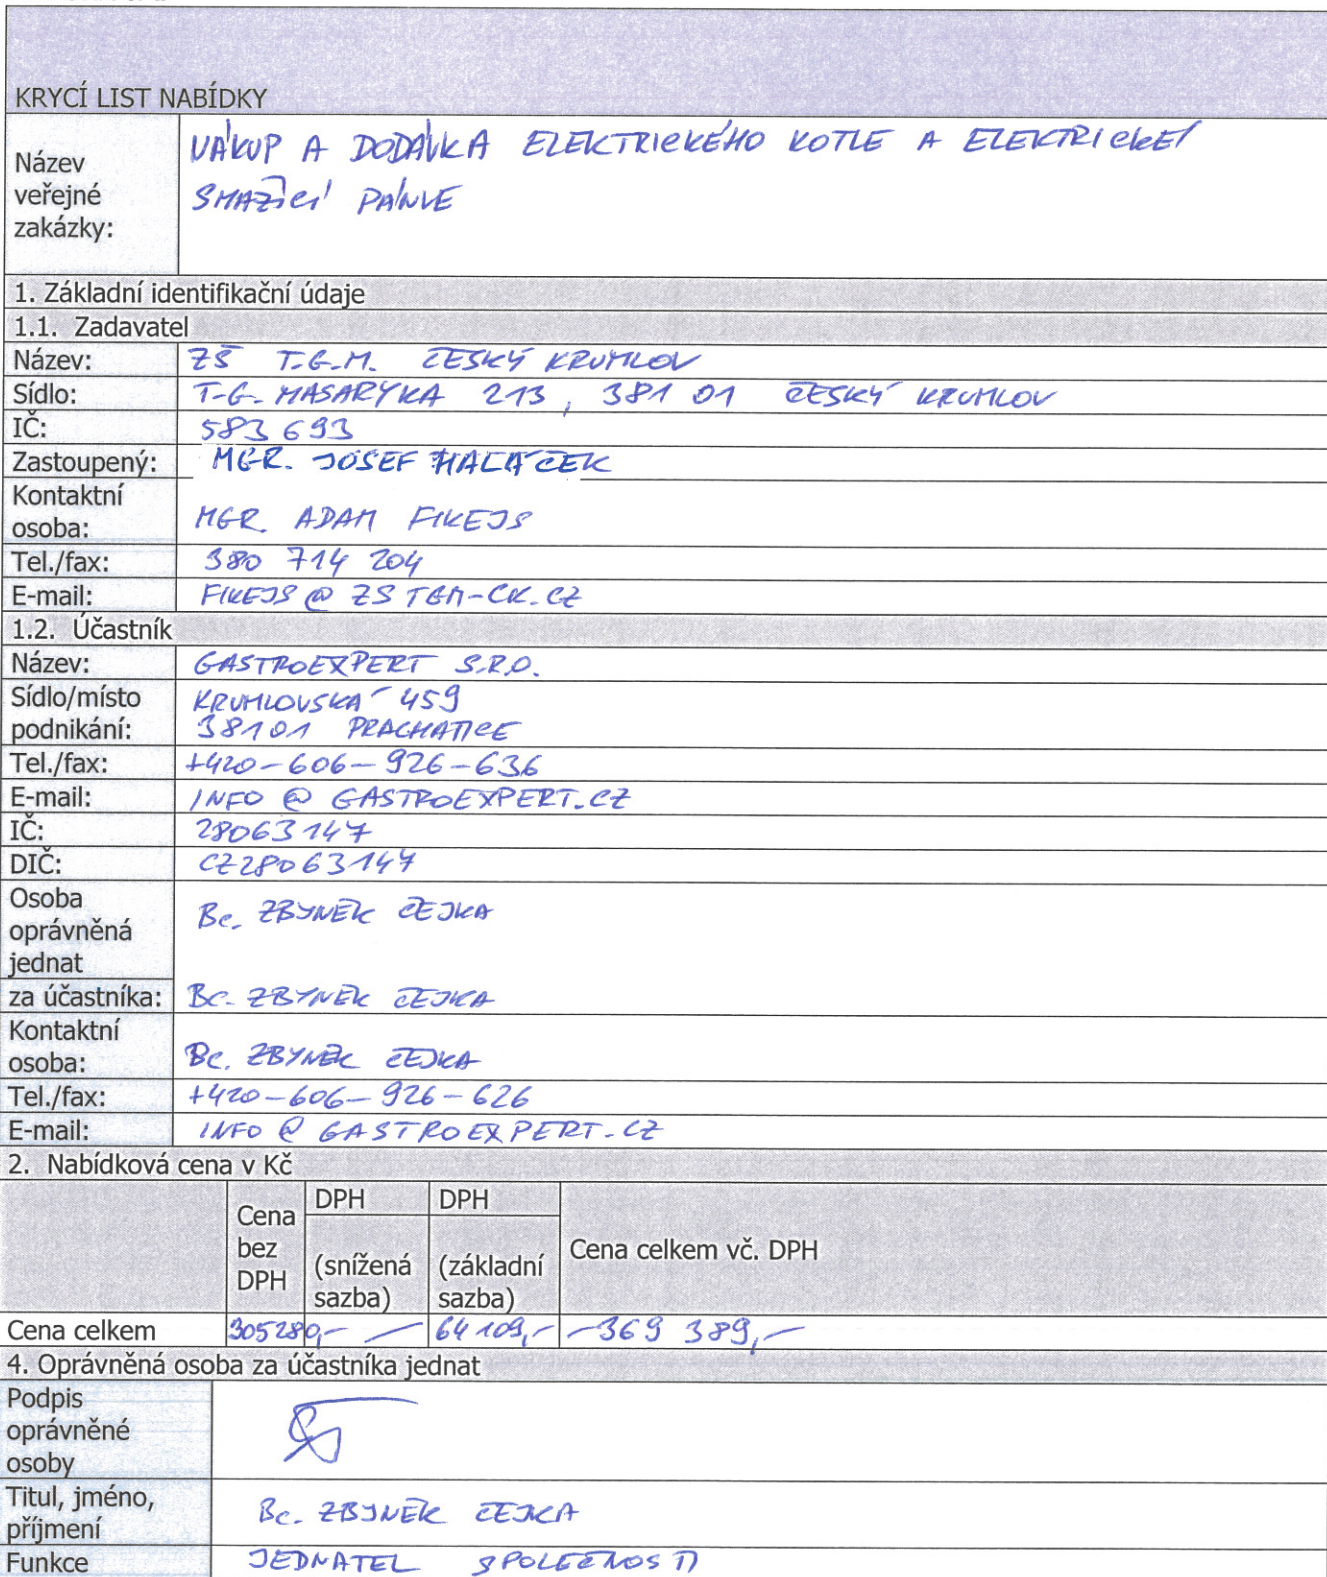 KRYCÍ LIST NABÍDKY
Název veřejné zakázky:
NÁKUP A DODÁVKA ELEKTRICKÉHO KOTLE A ELEKTRICKÉ
SMAŽÍCÍ PÁNVE
1. Základní identifikační údaje
1.1. Zadavatel
Název: ZŠ T.G.M. ČESKÝ KRUMLOV
Sídlo: T.G. MASARYKA 213, 381 01 ČESKÝ KRUMLOV
IČ: 583 693
Zastoupený: MGR. JOSEF HALAČEK
Kontaktní
osoba: MGR. ADAM FIKEJS
Tel./fax: 380 714 204
E-mail: FIKEJS @ ZSTGM-CK.CZ
1.2. Účastník
Název: GASTROEXPERT S.R.O.
Sídlo/místo KRUMLOVSKÁ 459
podnikání: 38101 PRACHATICE
Tel./fax: +420-606-926-636
E-mail: INFO @ GASTROEXPERT.CZ
IČ: 28063147
DIČ: CZ28063147
Osoba
oprávněná Bc. ZBYNĚK ČEJKA
jednat
za účastníka: Bc. ZBYNĚK ČEJKA
Kontaktní
osoba: Bc. ZBYNĚK ČEJKA
Tel./fax: +420-606-926-626
E-mail: INFO @ GASTROEXPERT.CZ
2. Nabídková cena v Kč
Cena bez DPH
DPH (snížená sazba)
DPH (základní sazba)
Cena celkem vč. DPH
Cena celkem 305280,- — 64 109,- -369 389,-
4. Oprávněná osoba za účastníka jednat
Podpis
oprávněné
osoby
Titul, jméno,
příjmení Bc. ZBYNĚK ČEJKA
Funkce JEDNATEL SPOLEČNOSTI